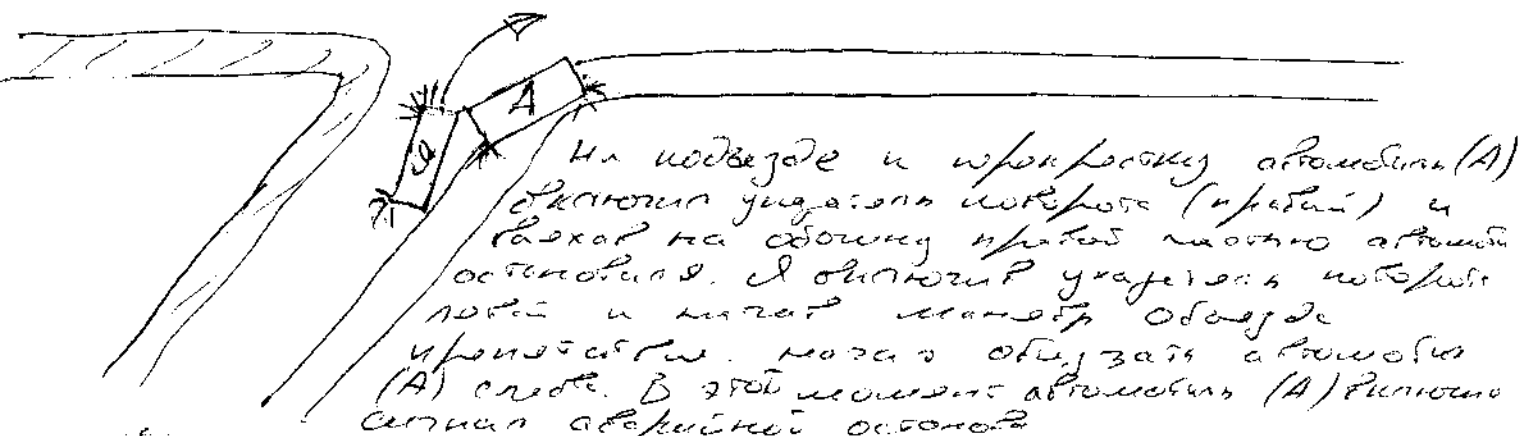 А
Я
На подъезде к перекрестку автомобиль (А)
включил указатель поворота (правый) и
въехав на обочину правой частью автомоб
остановился. Я включив указатель поворота
левый и начав маневр объезда
препятствия. начал объезжать автомобиль
(А) слева. В этот момент автомобиль (А) включил
сигнал аварийной остановки